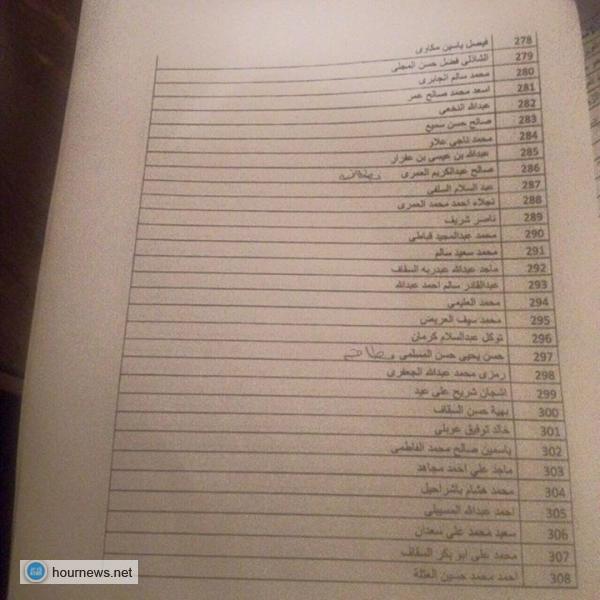 278 فيصل ياسين مكاوى
279 الشاذلى فضل حسن المجلى
280 محمد سالم الجابرى
281 اسعد محمد صالح عمر
282 عبدالله النخعى
283 صالح حسن سميع
284 محمد ناجي علاو
285 عبدالله بن عيسى بن عفرار
286 صالح عبدالكريم العمرى
287 عبد السلام السلفى
288 نجلاء احمد محمد العمرى
289 ناصر شريف
290 محمد عبدالمجيد قباطي
291 محمد سعيد سالم
292 ماجد عبدالله عبدربه السقاف
293 عبدالقادر سالم احمد عبدالله
294 محمد العليمي
295 محمد سيف العريض
296 توكل عبدالسلام كرمان
297 حسن يحيى حسن المسلمى
298 رمزى محمد عبدالله الجعفرى
299 اشجان شريح على عيد
300 بهية حسن السقاف
301 خالد توفيق عوبلي
302 ياسمين صالح محمد الفاطمى
303 ماجد علي احمد مجاهد
304 محمد هشام باشراحيل
305 احمد عبدالله المسيبلى
306 سعيد محمد على سعدان
307 محمد على ابو بكر السقاف
308 احمد محمد حسين العثلة
hournews.net